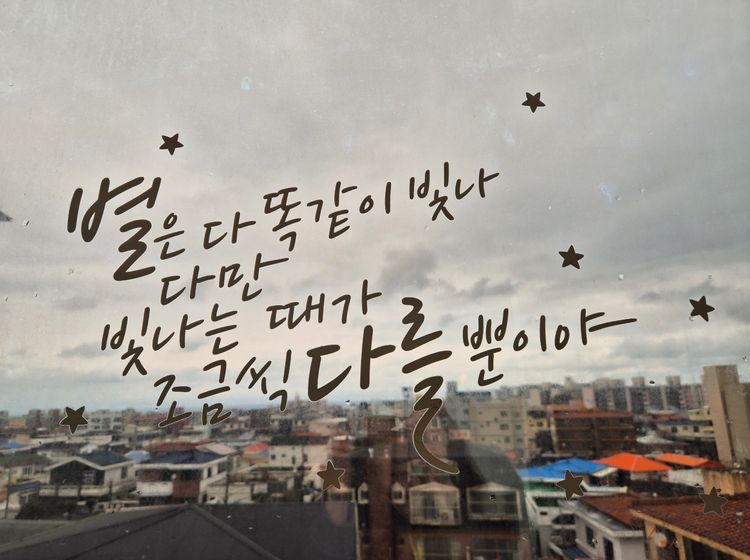 별은 다 똑같이 빛나
다만
빛나는 때가
조금씩 다를 뿐이야